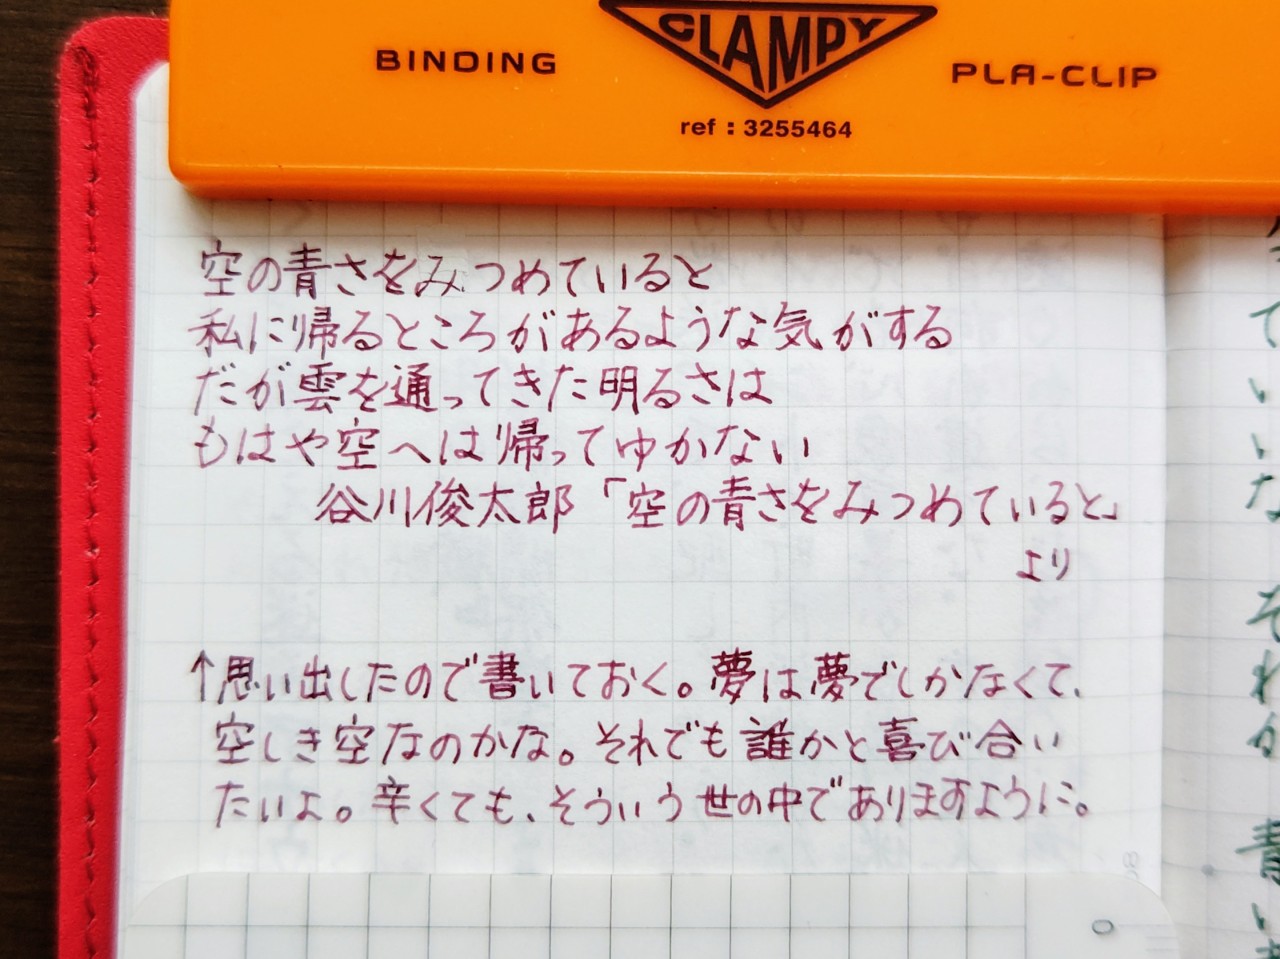 CLAMPY
BINDING
PLA-CLIP
ref : 3255464
空の青さをみつめていると
私に帰るところがあるような気がする
だが雲を通ってきた明るさは
もはや空へは帰ってゆかない
谷川俊太郎「空の青さをみつめていると」
より
↑思い出したので書いておく。夢は夢でしかなくて、
空しき空なのかな。それでも誰かと喜び合い
たいよ。辛くても、そういう世の中でありますように。
0
ていいな それか 青い